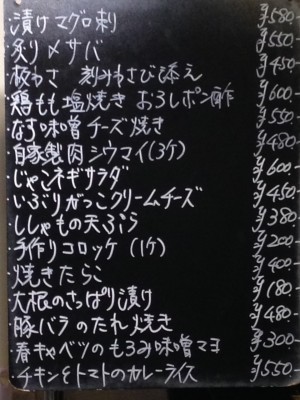 ・漬けマグロ刺 ¥580-
・炙り〆サバ ¥550-
・板わさ 刻みわさび添え ¥450-
・鶏もも塩焼き おろしポン酢 ¥600-
・なす味噌チーズ焼き ¥550-
・自家製肉シウマイ(3ケ) ¥480-
・じゃこネギサラダ ¥600-
・いぶりがっこクリームチーズ ¥450-
・ししゃもの天ぷら ¥380-
・手作りコロッケ (1ケ) ¥200-
・焼きたらこ ¥400-
・大根のさっぱり漬け ¥180-
・豚バラのたれ焼き ¥480-
・春キャベツのもろみ味噌マヨ ¥300-
・チキンとトマトのカレーライス ¥550-